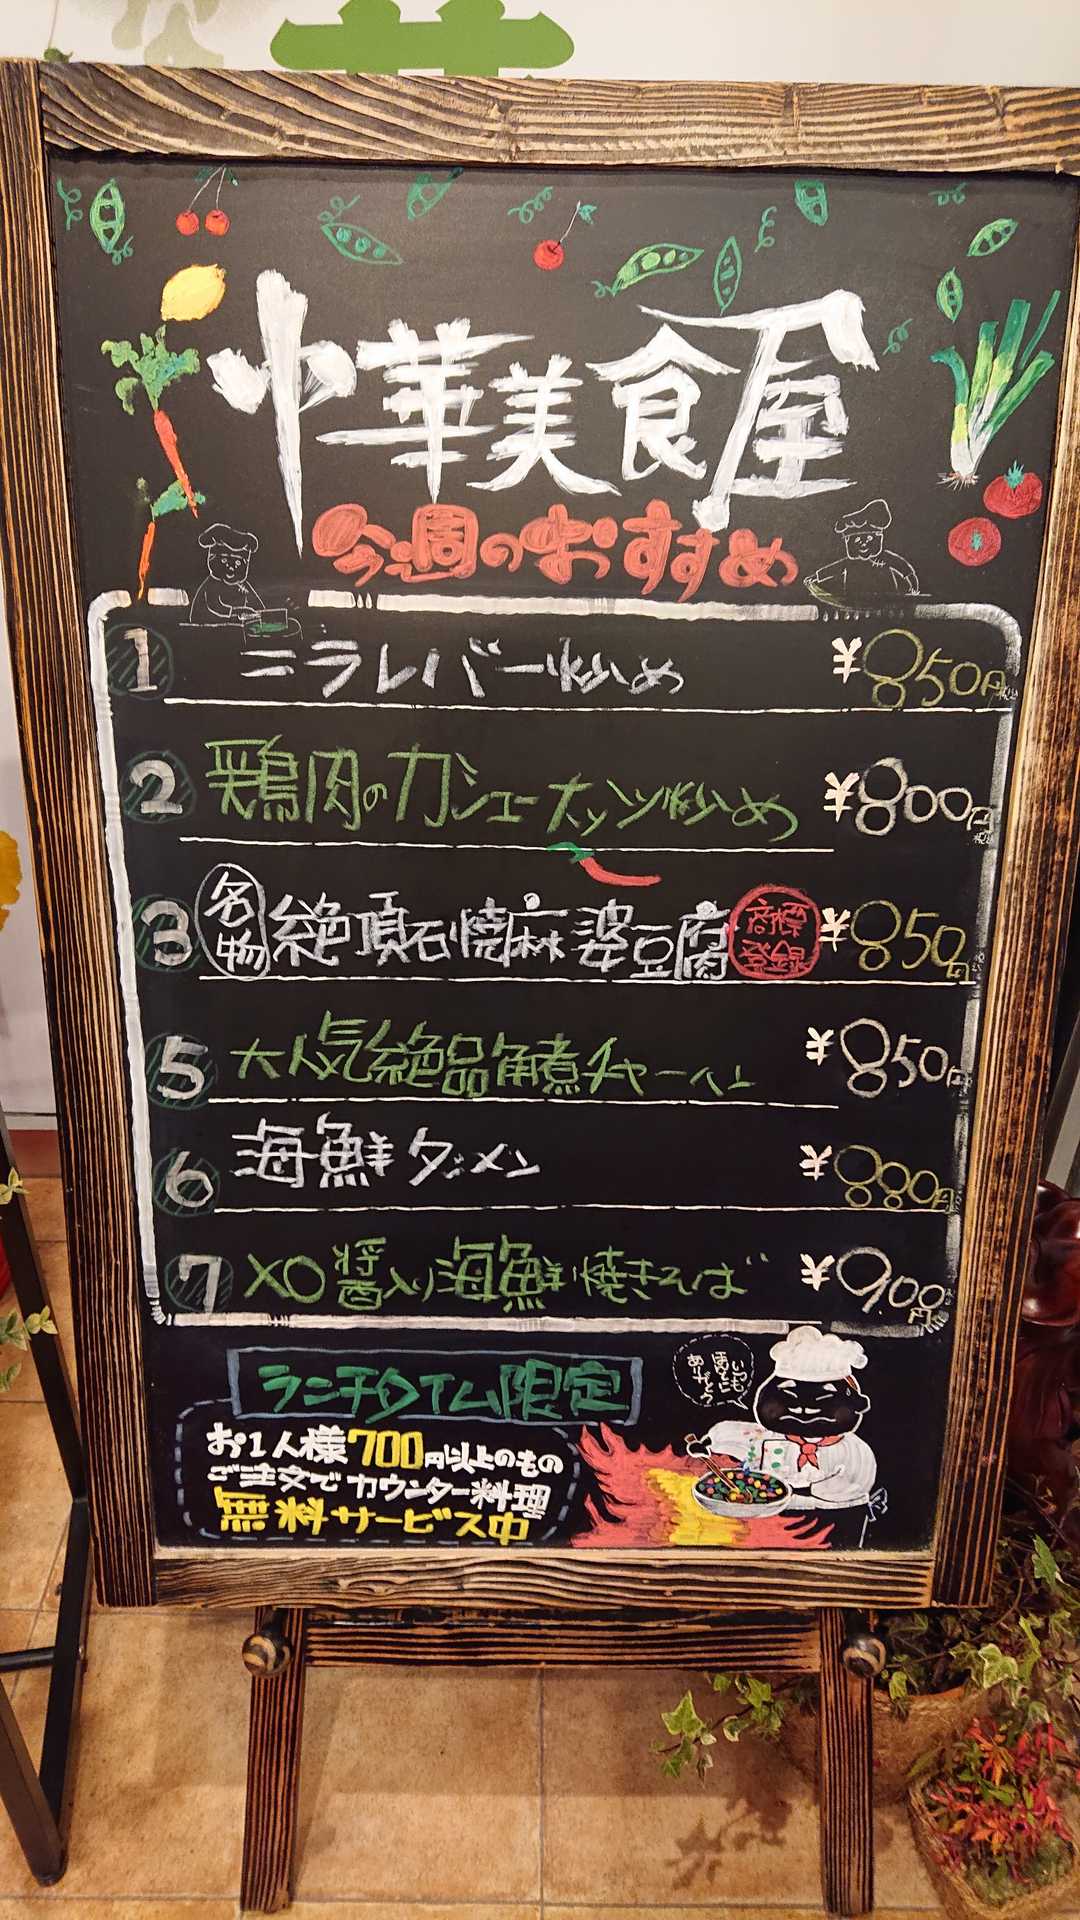 中華美食屋
今週のおすすめ
1 ニラレバー炒め ¥850円税込
2 鶏肉のカシューナッツ炒め ¥800円税込
3 名物 絶頂石焼麻婆豆腐 商標登録 ¥850円
5 大人気絶品角煮チャーハン ¥850円
6 海鮮タンメン ¥880円
7 XO醤入り海鮮焼きそば ¥900円
ランチタイム限定
いつも
ほんとに
ありがとう
お1人様700円以上のもの
ご注文でカウンター料理
無料サービス中